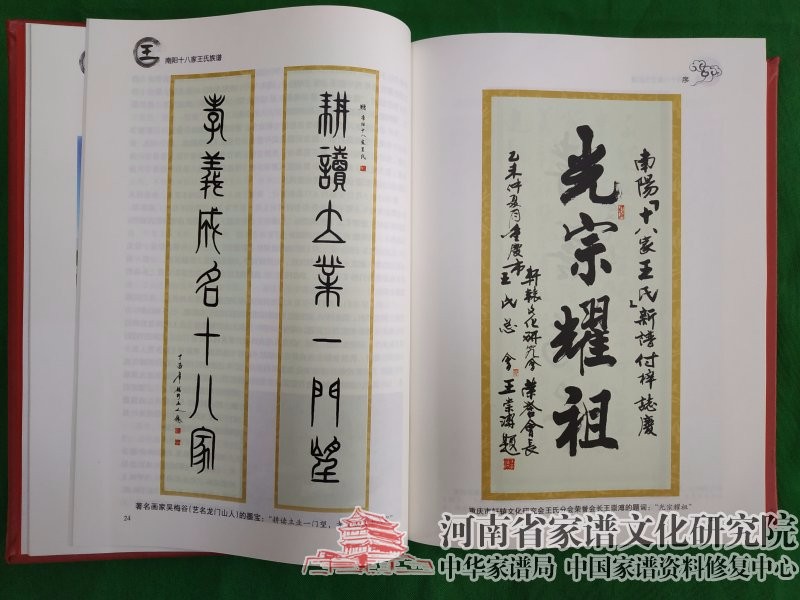 王
南阳十八家王氏族谱
耕讀立業一門望
孝義成名十八家
著名画家吴梅谷(艺名龙门山人)的墨宝:"耕读立业一门望,
24
序
南陽「十八家王氏」新譜付梓誌慶
光宗耀祖
乙未仲夏月重慶市
軒轅文化研究會 榮譽會長
王氏 會 王崇溥題
重庆市轩辕文化研究会王氏分会荣誉会长王崇溥的题词:"光宗耀祖"
河南省家谱文化研究院
中华家谱局 中国家谱资料修复中心